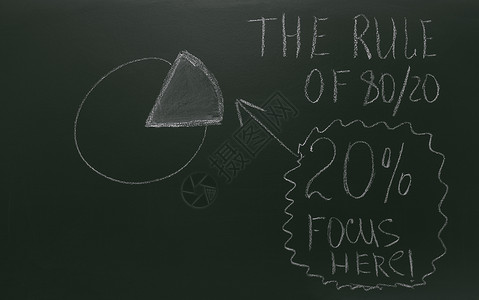 THE RULE
OF 80/20
20%
FOCUS
HERE!
摄图网